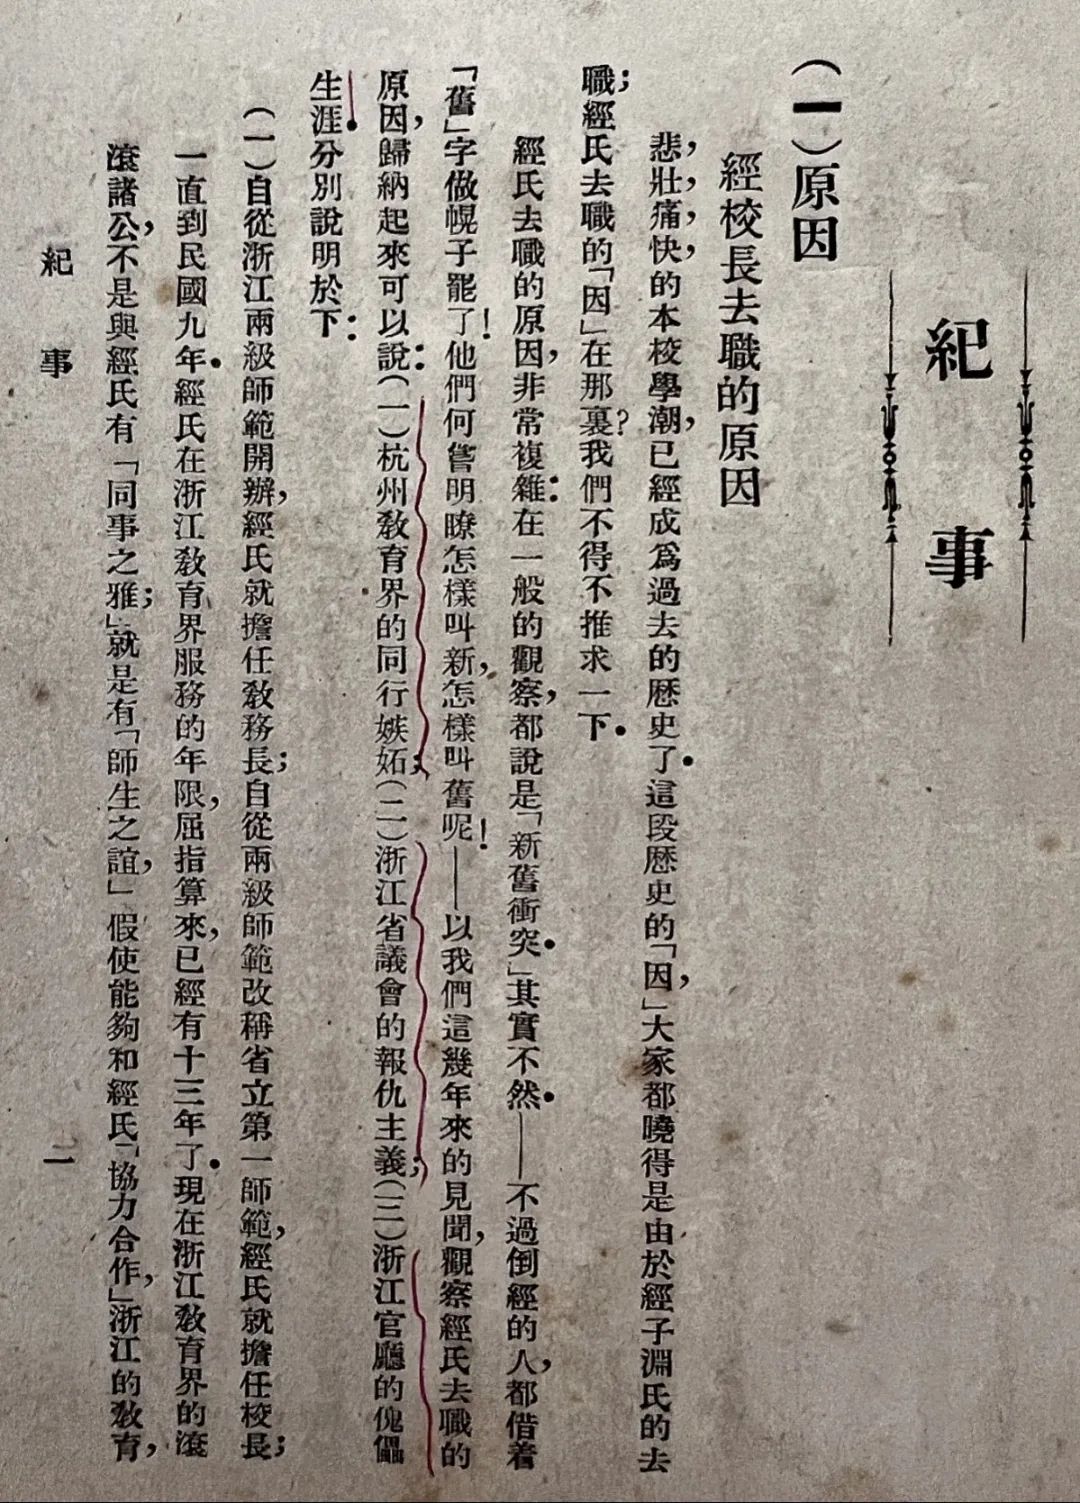 紀事
(一)原因
經校長去職的原因
悲,壯,痛,快的本校學潮,已經成爲過去的歷史了.這段歷史的「因,」大家都曉得是由於經子淵氏的去
職;經氏去職的「因」在那裏?我們不得不推求一下.
經氏去職的原因,非常複雜:在一般的觀察,都說是「新舊衝突.」其實不然.——不過倒經的人,都借着
「舊」字做幌子罷了!他們何嘗明瞭怎樣叫新,怎樣叫舊呢!——以我們這幾年來的見聞,觀察經氏去職的
原因,歸納起來可以說:(一)杭州敎育界的同行嫉妬;(二)浙江省議會的報仇主義;(三)浙江官廳的傀儡
生涯.分別說明於下:
(一)自從浙江兩級師範開辦,經氏就擔任敎務長;自從兩級師範改稱省立第一師範,經氏就擔任校長;
一直到民國九年.經氏在浙江敎育界服務的年限,屈指算來,已經有十三年了.現在浙江敎育界的滾
滾諸公,不是與經氏有「同事之雅;」就是有「師生之誼,」假使能夠和經氏「協力合作,」浙江的敎育,
紀事
一